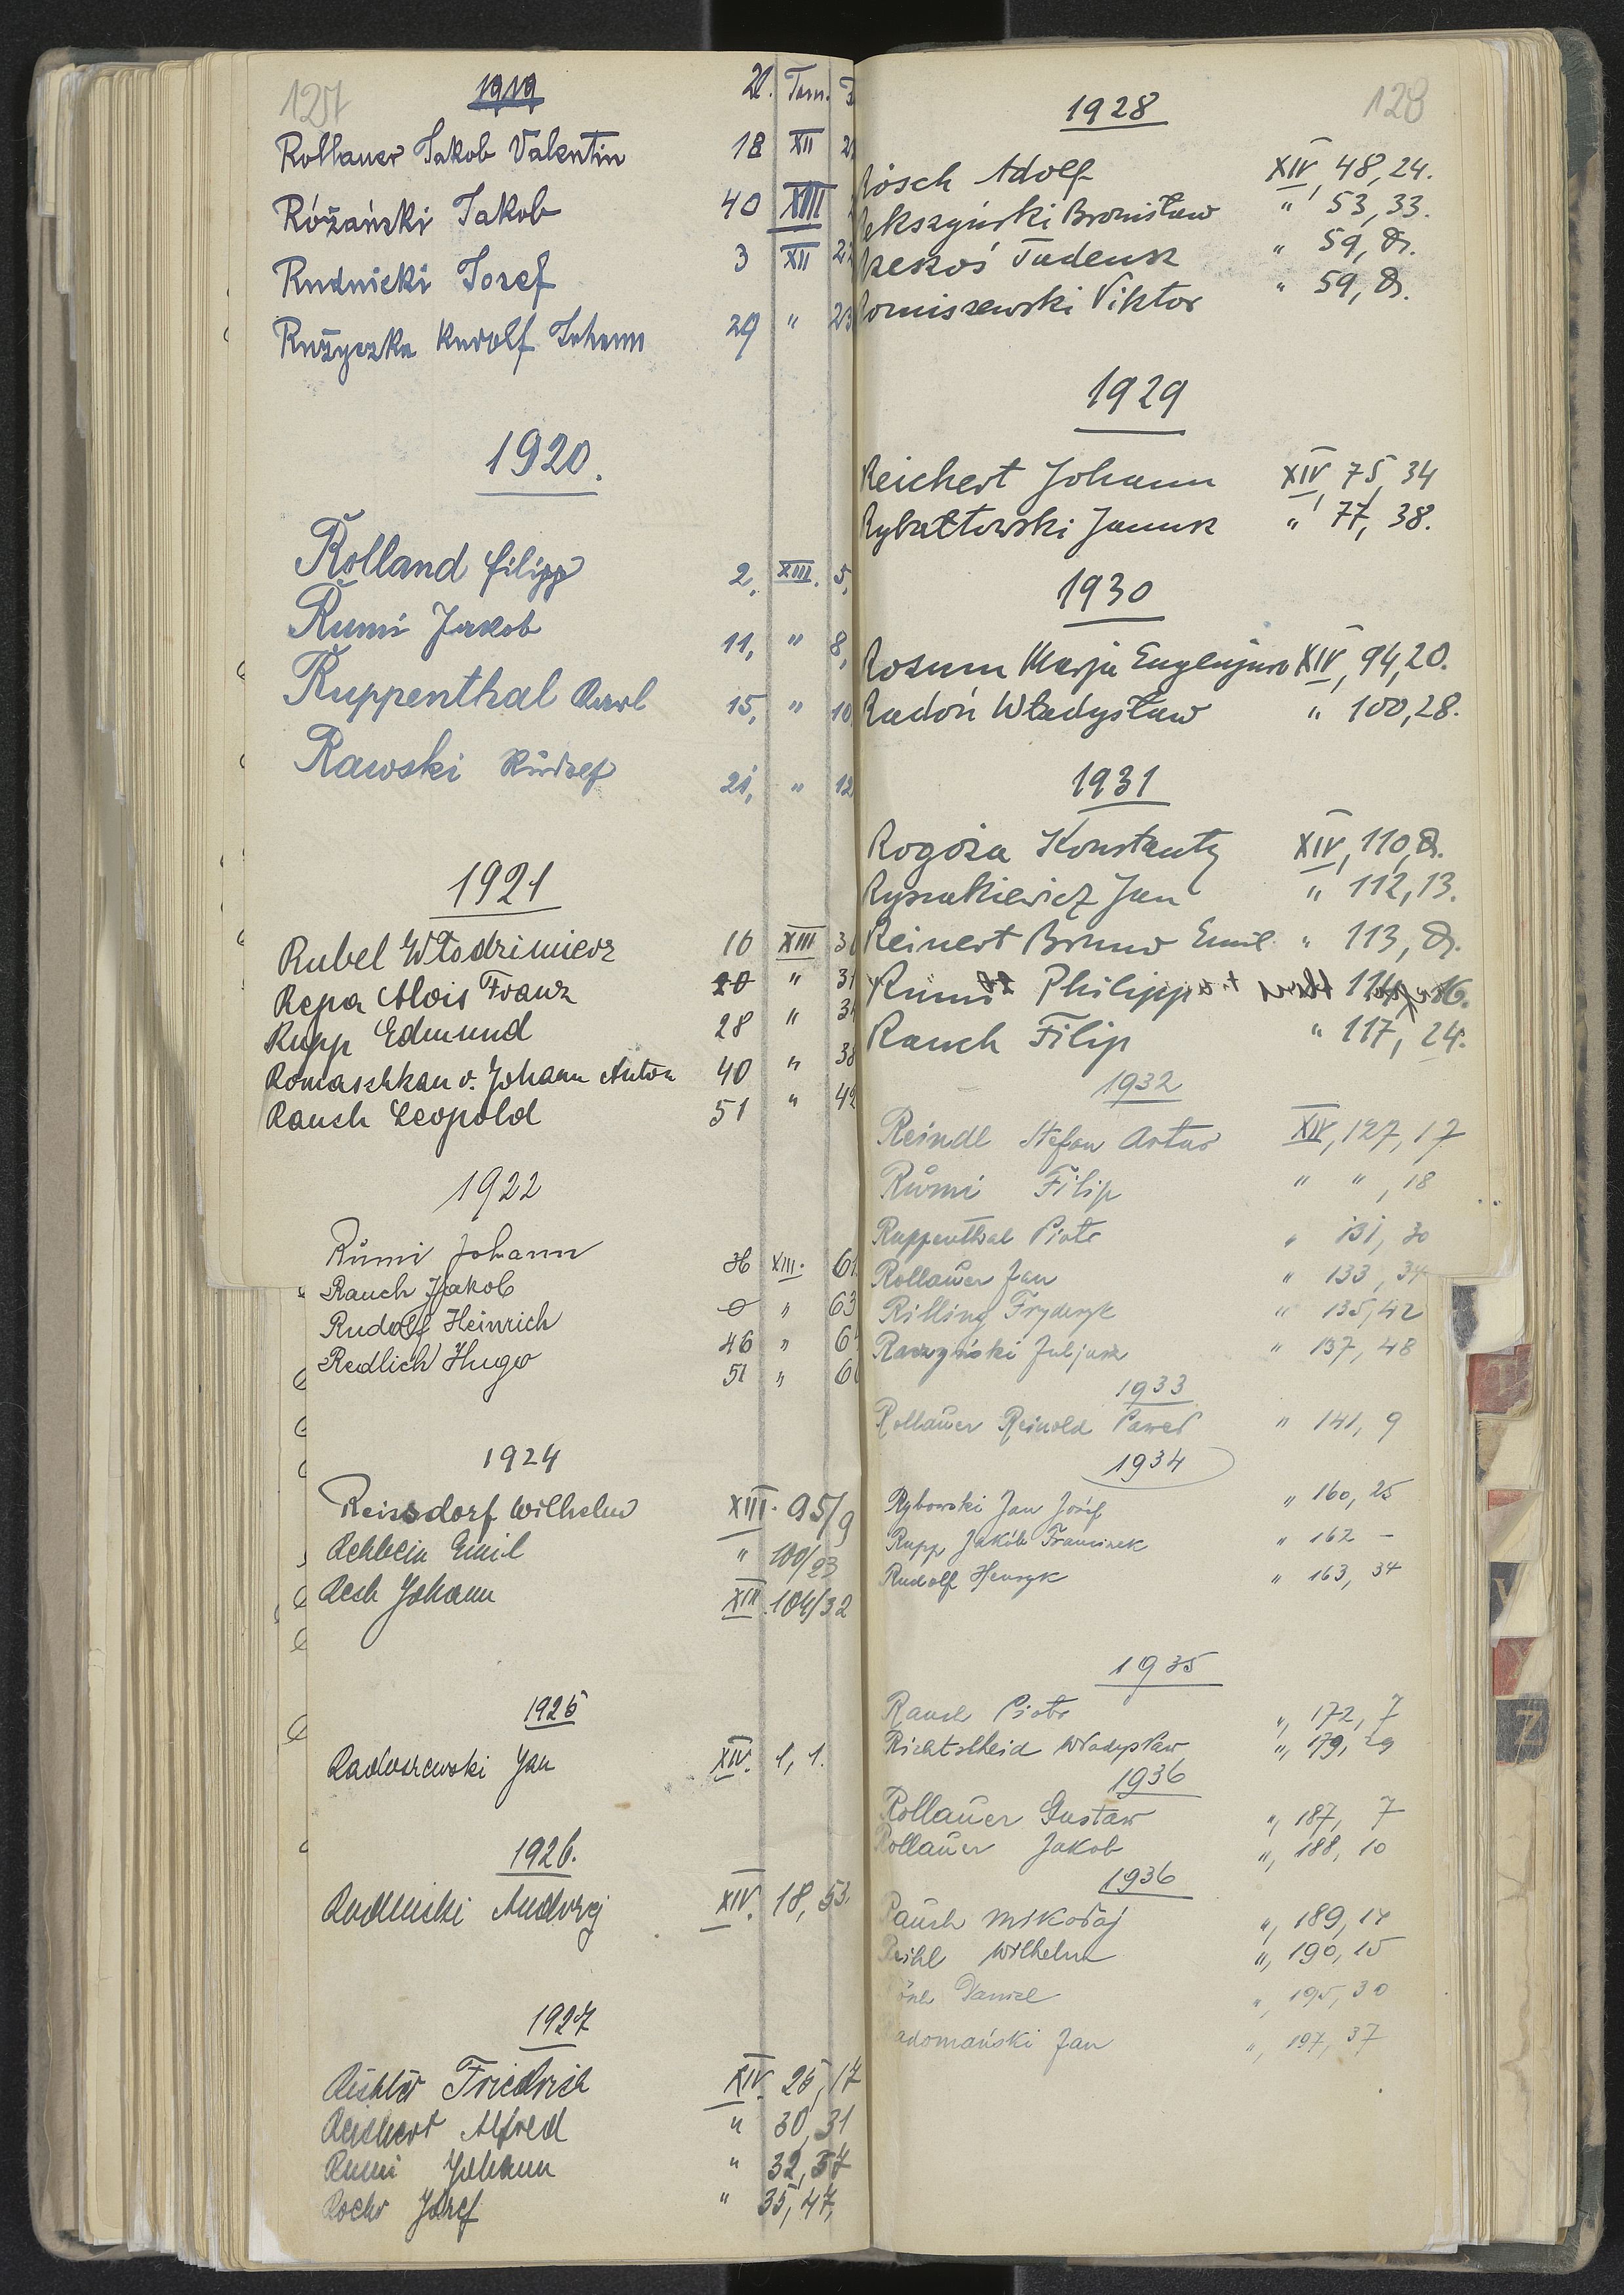 127
1919
Z. Tom.
Rollauer Jakob Valentin 18 XII
Różański Jakob 40 XIII
Rudnicki Josef 3 XII
Ružyczka Rudolf Johann 29 "
1920.
Rolland Filipp 2, XIII. 5,
Rumi Jakob 11, " 8,
Ruppenthal Karl 15, " 10
Rawski Rudolf 21, " 12
1921
Rubel Włodzimierz 16 XIII
Repa Alois Franz 20 "
Rupp Edmund 28 "
Romaschkan v. Johann Anton 40 " 38
Rauch Leopold 51 " 42
1922
Rumi Johann 36 XIII.
Rauch Jakob 0 " 63
Rudolf Heinrich 46 "
Redlich Hugo 51 "
1924
Reissdorf Wilhelm XIII. 95/9
Rehbein Emil " 100/23
Rech Johann XIII. 104/32
1925
Radoszewski Jan XIV. 1, 1.
1926.
Rudnicki Andrzej XIV. 18, 53.
1927
Richter Friedrich XIV. 25, 17
Reichert Alfred " 30, 31
Rumi Johann " 32, 37
Rochr Józef " 35, 47,
128
1928
Rösch Adolf XIV, 48, 24.
Rekszyński Bronisław " 53, 33.
Tadeusz " 59,
Romiszewski Viktor " 59,
1929
Reichert Johann XIV, 75, 34
Rybałtowski Janusz " 77, 38.
1930
Rosum Marja Eugenjusz XIV, 94, 20.
Radoń Władysław " 100, 28.
1931
Rogoża Konstanty XIV, 110,
Rynakiewicz Jan " 112, 13.
Reinert Bruno Emil " 113,
Rumi Philipp 16.
Rauch Filip " 117, 24.
1932
Reindl Stefan Artur XIV, 127, 17
Rumi Filip " " , 18
Ruppenthal Piotr " 131, 30
Rollauer Jan " 133, 34
Rilling Fryderyk " 135, 42
Raczyński Juljusz " 137, 48
1933
Rollauer Reinold Paweł " 141, 9
1934
Rybowski Jan Józef " 160, 25
Rupp Jakób Franciszek " 162 -
Rudolf Henryk " 163, 34
1935
Rauch Piotr " 172, 7
Richtscheid Władysław " 179, 29
1936
Rollauer Gustaw " 187, 7
Rollauer Jakob " 188, 10
1936
Rauch Mikołaj " 189, 14
Reihl Wilhelm " 190, 15
Daniel " 195, 30
Radomański Jan " 197, 37
Z